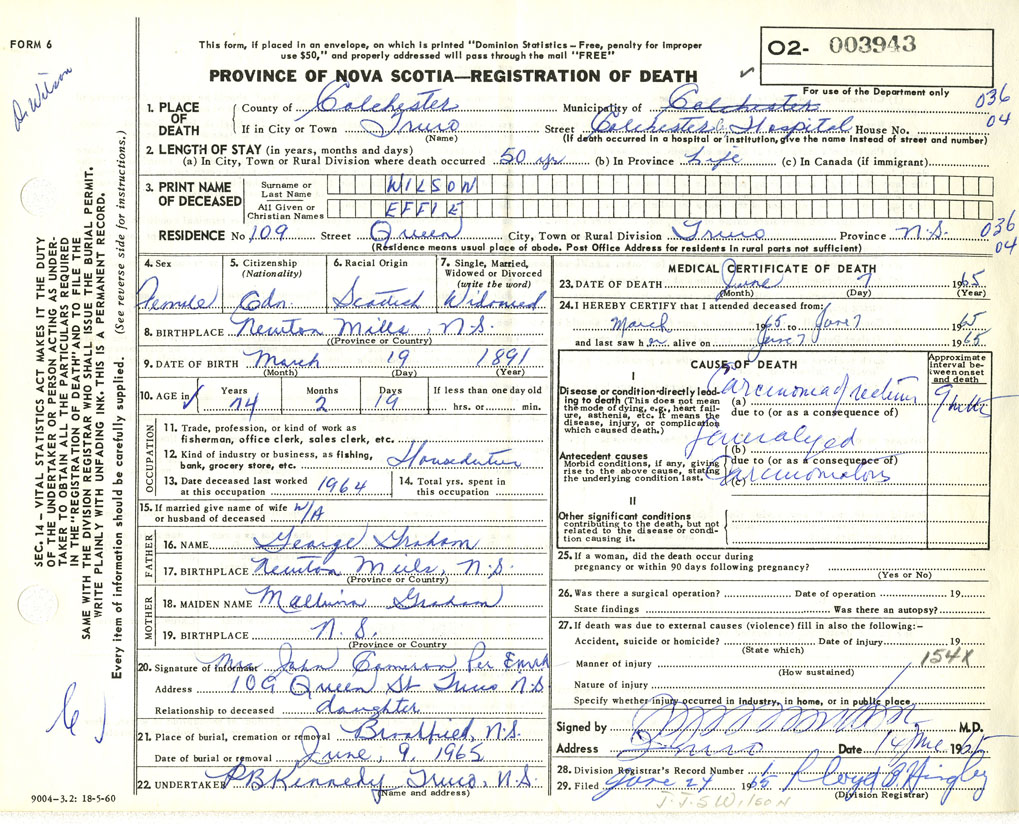 FORM 6
Dr Wilson
This form, if placed in an envelope, on which is printed "Dominion Statistics – Free, penalty for improper
use $50," and properly addressed will pass through the mail "FREE"
PROVINCE OF NOVA SCOTIA—REGISTRATION OF DEATH
O2- 003943
For use of the Department only
036
04
1. PLACE OF DEATH
County of Colchester Municipality of Colchester
If in City or Town Truro Street Colchester Hospital House No.
(Name) (If death occurred in a hospital or institution, give the name instead of street and number)
2. LENGTH OF STAY (in years, months and days)
(a) In City, Town or Rural Division where death occurred 50 yrs (b) In Province Life (c) In Canada (if immigrant)
3. PRINT NAME OF DECEASED
Surname or Last Name WILSON
All Given or Christian Names EFFIE
RESIDENCE No 109 Street Queen City, Town or Rural Division Truro Province N.S.
036
04
(Residence means usual place of abode. Post Office Address for residents in rural parts not sufficient)
4. Sex 5. Citizenship (Nationality) 6. Racial Origin 7. Single, Married, Widowed or Divorced (write the word)
Female Cdn. Scottish Widowed
8. BIRTHPLACE Newton Mills, N.S.
(Province or Country)
9. DATE OF BIRTH March 19 1891
(Month) (Day) (Year)
10. AGE in Years Months Days If less than one day old
74 2 19 hrs. or min.
OCCUPATION
11. Trade, profession, or kind of work as
fisherman, office clerk, sales clerk, etc.
12. Kind of industry or business, as fishing,
bank, grocery store, etc. Houseduties
13. Date deceased last worked at this occupation 1964
14. Total yrs. spent in this occupation
15. If married give name of wife or husband of deceased N/A
FATHER
16. NAME George Graham
17. BIRTHPLACE Newton Mills, N.S.
(Province or Country)
MOTHER
18. MAIDEN NAME Graham
19. BIRTHPLACE N.S.
(Province or Country
20. Signature of informant Mrs John Cameron Per
Address 109 Queen St Truro N.S
Relationship to deceased daughter
21. Place of burial, cremation or removal N.S.
Date of burial or removal June, 9, 1965
22. UNDERTAKER P B Kennedy, Truro, N.S.
(Name and address)
MEDICAL CERTIFICATE OF DEATH
23. DATE OF DEATH June 7 1965
(Month) (Day) (Year)
24. I HEREBY CERTIFY that I attended deceased from:
March 1965 to June 7 1965
and last saw her alive on June 7 1965
CAUSE OF DEATH
Approximate interval between onset and death
I
Disease or condition directly leading to death (This does not mean the mode of dying, e.g., heart failure, asthenia, etc. It means the disease, injury, or complication which caused death.)
(a) Carcinoma of rectum
due to (or as a consequence of)
Antecedent causes
Morbid conditions, if any, giving rise to the above cause, stating the underlying condition last.
(b)
due to (or as a consequence of)
(c)
II
Other significant conditions
contributing to the death, but not related to the disease or condition causing it.
25. If a woman, did the death occur during
pregnancy or within 90 days following pregnancy?
(Yes or No)
26. Was there a surgical operation? Date of operation 19
State findings Was there an autopsy?
27. If death was due to external causes (violence) fill in also the following:–
Accident, suicide or homicide? Date of injury 19
(State which)
154X
Manner of injury
(How sustained)
Nature of injury
Specify whether injury occurred in Industry, in home, or in public place
Signed by M.D.
Address Truro Date 14 June 1965
28. Division Registrar's Record Number
29. Filed June 24 1965 Lloyd Hingley
(Division Registrar)
J.J.S Wilson
9004–3.2: 18-5-60
SEC. 14 – VITAL STATISTICS ACT MAKES IT THE DUTY
OF THE UNDERTAKER OR PERSON ACTING AS UNDER-
TAKER TO OBTAIN ALL THE PARTICULARS REQUIRED
IN THE "REGISTRATION OF DEATH" AND TO FILE THE
SAME WITH THE DIVISION REGISTRAR WHO SHALL ISSUE THE BURIAL PERMIT.
WRITE PLAINLY WITH UNFADING INK. THIS IS A PERMANENT RECORD.
Every item of information should be carefully supplied. (See reverse side for instructions.)